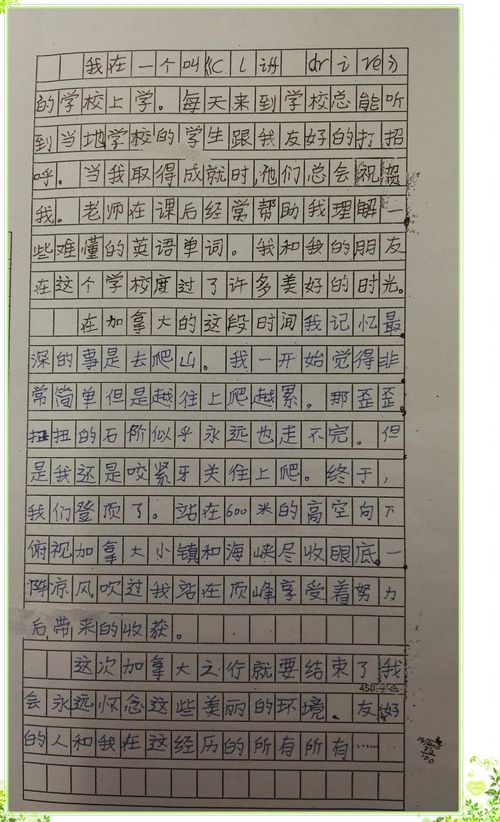 我在一个叫《Cliff drive》
的学校上学。每天来到学校总能听
到当地学校的学生跟我友好的打招
呼。当我取得成就时,他们总会祝贺
我。老师在课后经常帮助我理解一
些难懂的英语单词。我和我的朋友
在这个学校度过了许多美好的时光。
在加拿大的这段时间我记忆最
深的事是去爬山。我一开始觉得非
常简单但是越往上爬越累。那歪歪
扭扭的石阶似乎永远也走不完。但
是我还是咬紧牙关往上爬。终于,
我们登顶了。站在600米的高空向下
俯视加拿大小镇和海峡尽收眼底。一
阵凉风吹过我站在顶峰享受着努力
后带来的收获。
这次加拿大之行就要结束了我
会永远怀念这些美丽的环境、友好
的人和我在这经历的所有所有……